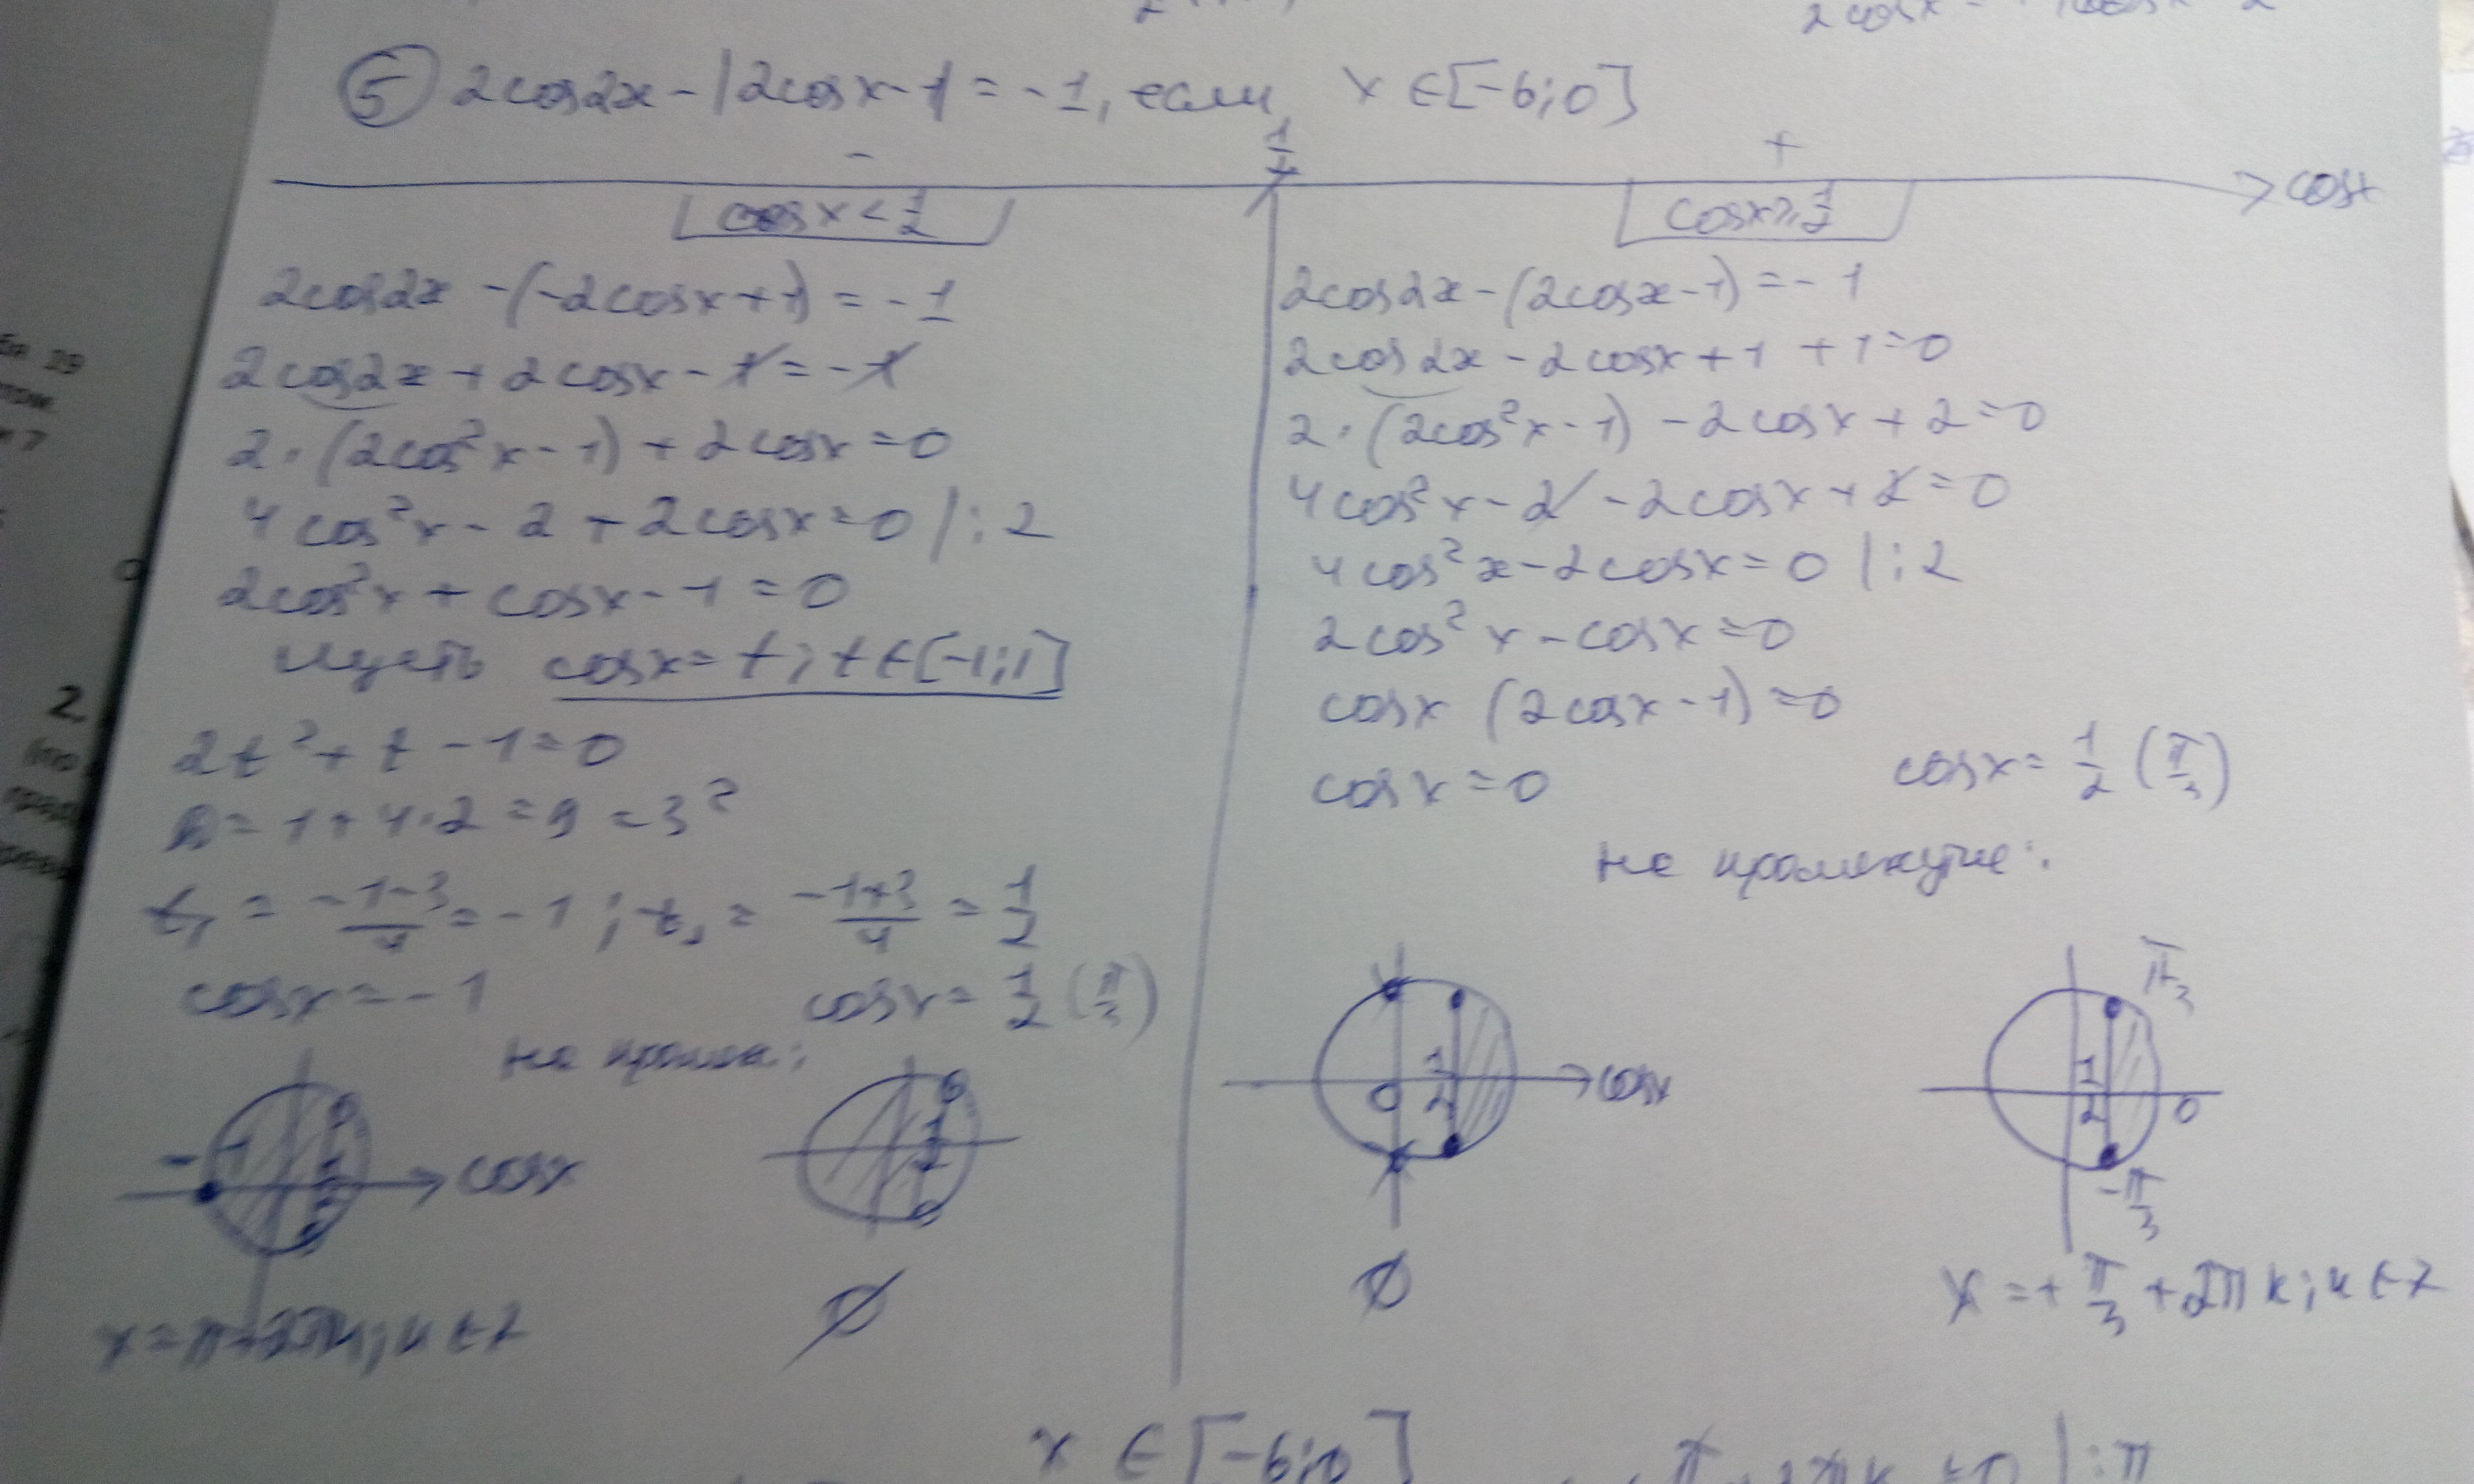 ⑤ 2cos2x - |2cosx - 1| = -1, если x ∈ [-6; 0]
- 1/2 + cosx
cosx < 1/2
2cos2x - (-2cosx + 1) = -1
2cos2x + 2cosx - 1 = -1
2 · (2cos²x - 1) + 2cosx = 0
4cos²x - 2 + 2cosx = 0 | : 2
2cos²x + cosx - 1 = 0
Пусть cosx = t; t ∈ [-1; 1]
2t² + t - 1 = 0
D = 1 + 4·2 = 9 = 3²
t₁ = (-1-3)/4 = -1; t₂ = (-1+3)/4 = 1/2
cosx = -1 cosx = 1/2 (π/3)
на пром:
-1 1/2 cosx
1/2
x = π + 2πk; k ∈ Z ∅
cosx ≥ 1/2
2cos2x - (2cosx - 1) = -1
2cos2x - 2cosx + 1 + 1 = 0
2 · (2cos²x - 1) - 2cosx + 2 = 0
4cos²x - 2 - 2cosx + 2 = 0
4cos²x - 2cosx = 0 | : 2
2cos²x - cosx = 0
cosx (2cosx - 1) = 0
cosx = 0 cosx = 1/2 (π/3)
на промежутке:
0 1/2 cosx
π/3
1/2 0
-π/3
∅ x = ± π/3 + 2πk; k ∈ Z
x ∈ [-6; 0]
| : π